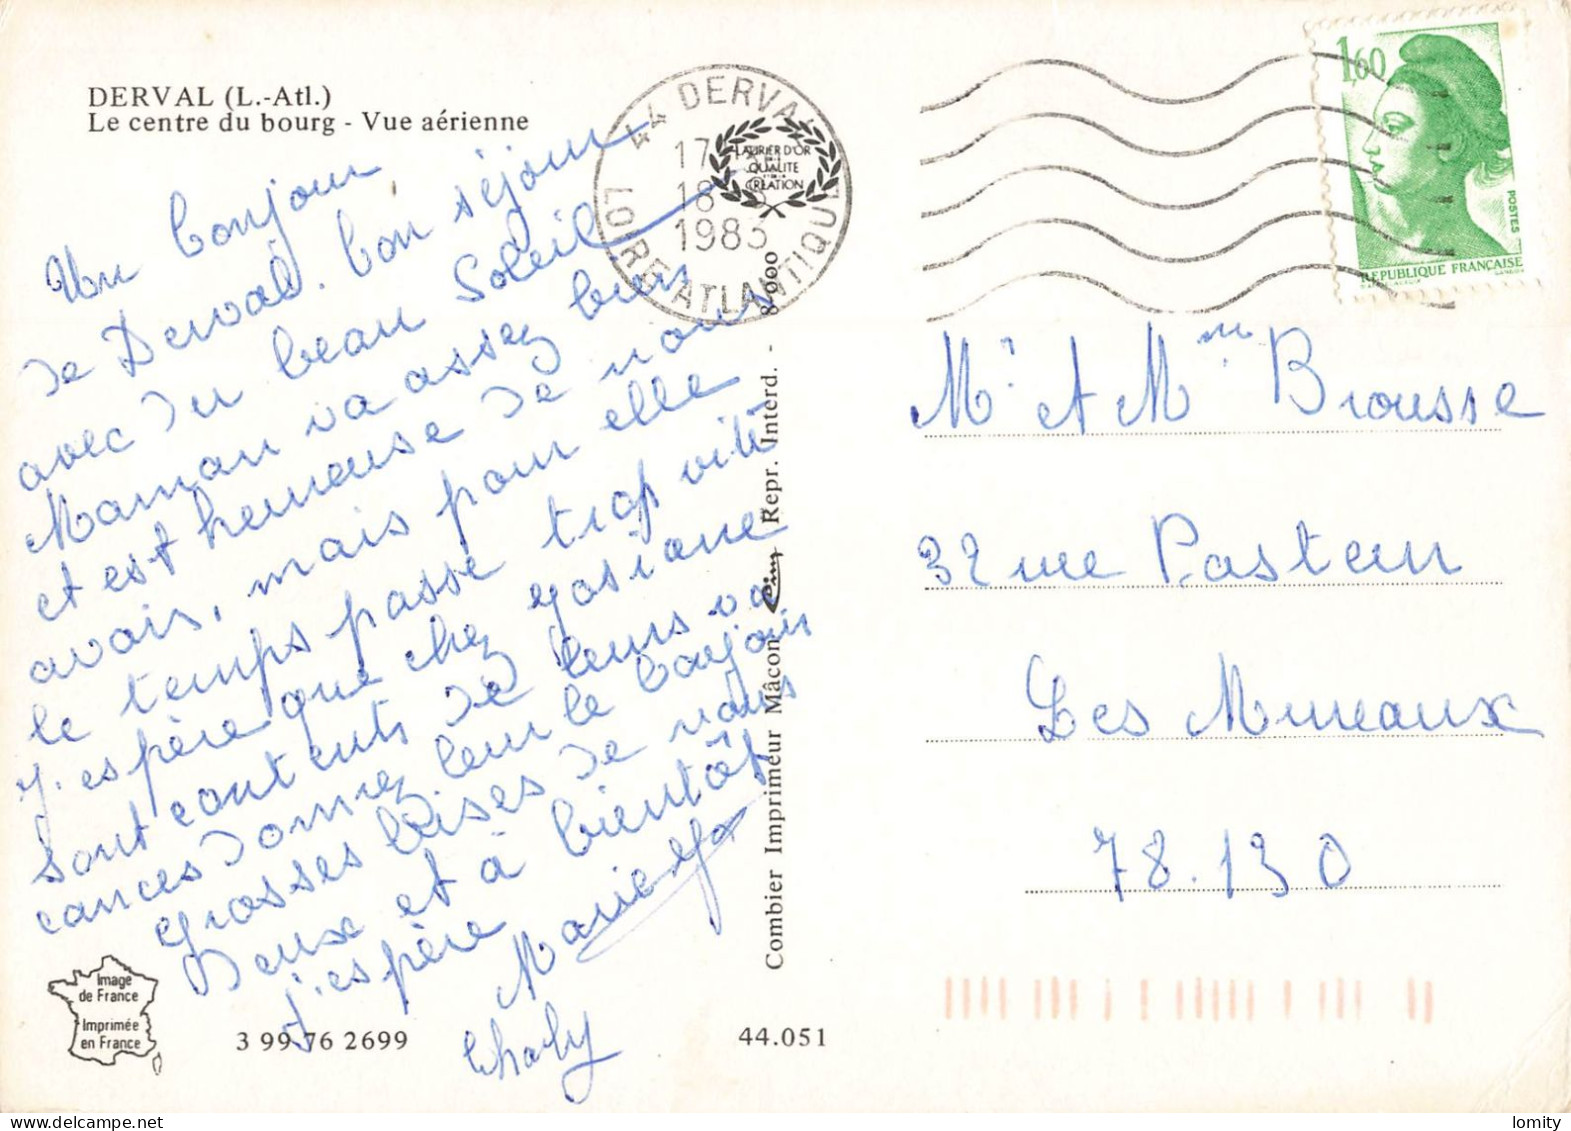 DERVAL (L.-Atl.)
Le centre du bourg - Vue aérienne
Un bonjour
de Derval. bon séjour
avec du beau Soleil
Maman va assez bien
et est heureuse de nous
avoir, mais pour elle
le temps passe trop vite
J'espère que chez Josiane
sont contents de leurs va
cances Donnez leur le bonjour
grosses bises de nous
Deux et à bientôt
j'espère
Charly
Image
de France
Imprimée
en France
3 99 76 2699
44.051
Combier Imprimeur Mâcon Cim Repr. Interd. -
44 DERVAL
LOIRE ATLANTIQUE
17
18
1983
LAURIER D'OR
QUALITE
CREATION
1,60
POSTES
REPUBLIQUE FRANÇAISE
Mr et Mme Brousse
32 rue Pasteur
Les Mureaux
78.130
lomity